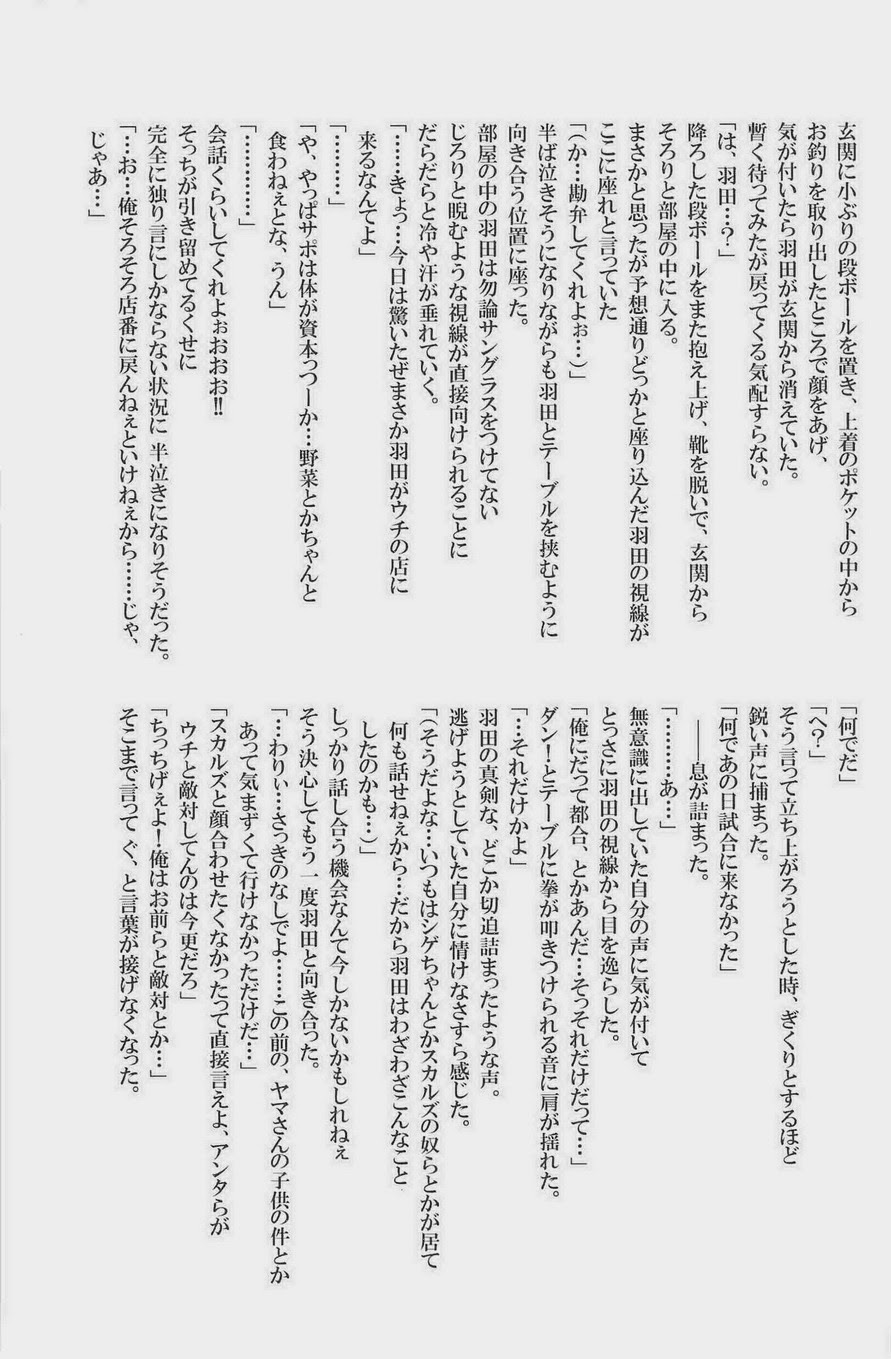 玄関に小ぶりの段ボールを置き、上着のポケットの中から
お釣りを取り出したところで顔をあげ、
気が付いたら羽田が玄関から消えていた。
暫く待ってみたが戻ってくる気配すらない。
「は、羽田…？」
降ろした段ボールをまた抱え上げ、靴を脱いで、玄関から
そろりと部屋の中に入る。
まさかと思ったが予想通りどっかと座り込んだ羽田の視線が
ここに座れと言っていた
「（か…勘弁してくれよぉ…）」
半ば泣きそうになりながらも羽田とテーブルを挟むように
向き合う位置に座った。
部屋の中の羽田は勿論サングラスをつけてない
じろりと睨むような視線が直接向けられることに
だらだらと冷や汗が垂れていく。
「……きょっ…今日は驚いたぜまさか羽田がウチの店に
来るなんてよ」
「………」
「や、やっぱサポは体が資本っつーか…野菜とかちゃんと
食わねぇとな、うん」
「…………」
会話くらいしてくれよぉおおお!!
そっちが引き留めてるくせに
完全に独り言にしかならない状況に 半泣きになりそうだった。
「…お…俺そろそろ店番に戻んねぇといけねぇから……じゃ、
じゃあ…」
「何でだ」
「へ？」
そう言って立ち上がろうとした時、ぎくりとするほど
鋭い声に捕まった。
「何であの日試合に来なかった」
――息が詰まった。
「………あ…」
無意識に出していた自分の声に気が付いて
とっさに羽田の視線から目を逸らした。
「俺にだって都合、とかあんだ…そっそれだけだって…」
ダン！とテーブルに拳が叩きつけられる音に肩が揺れた。
「…それだけかよ」
羽田の真剣な、どこか切迫詰まったような声。
逃げようとしていた自分に情けなさすら感じた。
「（そうだよな…いつもはシゲちゃんとかスカルズの奴らとかが居て
何も話せねぇから…だから羽田はわざわざこんなこと
したのかも…）」
しっかり話し合う機会なんて今しかないかもしれねぇ
そう決心してもう一度羽田と向き合った。
「…わりぃ…さっきのなしでよ……この前の、ヤマさんの子供の件とか
あって気まずくて行けなかっただけだ…」
「スカルズと顔合わせたくなかったって直接言えよ、アンタらが
ウチと敵対してんのは今更だろ」
「ちっちげぇよ！俺はお前らと敵対とか…」
そこまで言って ぐ、と言葉が接げなくなった。